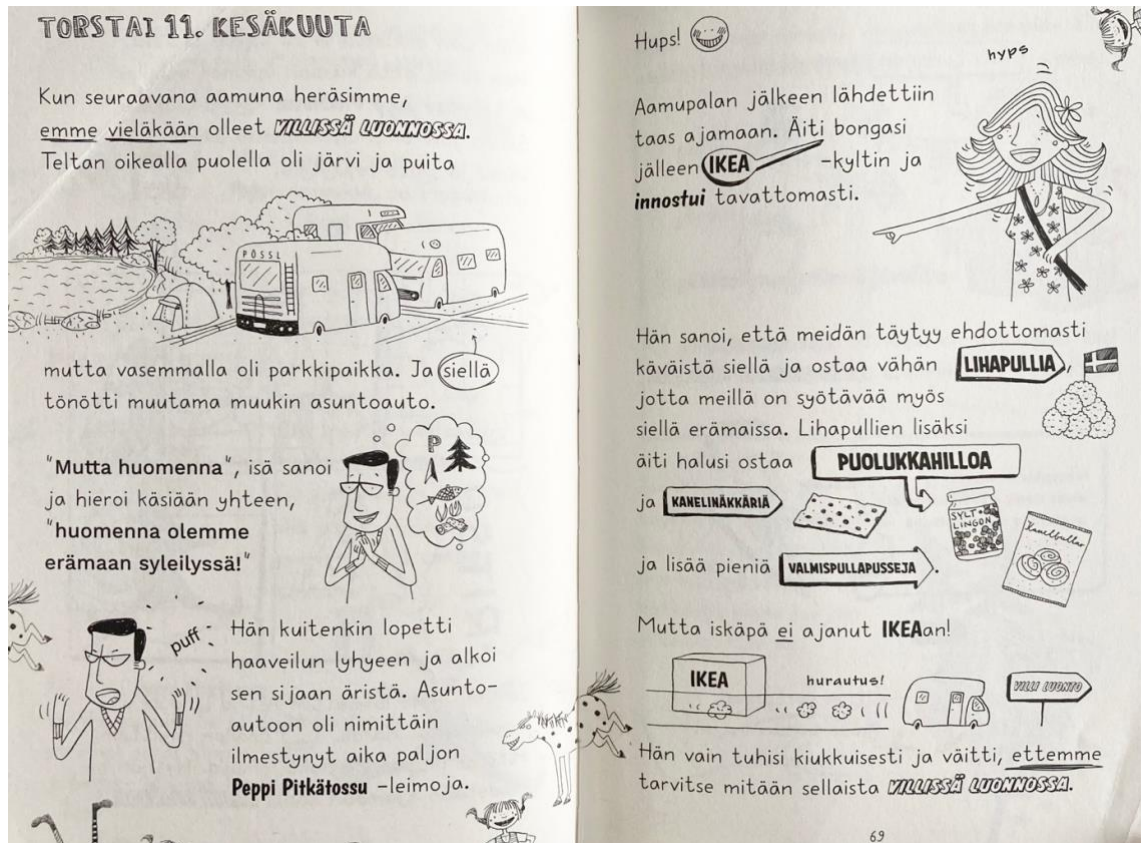 TORSTAI 11. KESÄKUUTA
Kun seuraavana aamuna heräsimme,
emme vieläkään olleet VILLISSÄ LUONNOSSA.
Teltan oikealla puolella oli järvi ja puita
PÖSSL
mutta vasemmalla oli parkkipaikka. Ja siellä
tönötti muutama muukin asuntoauto.
"Mutta huomenna", isä sanoi
ja hieroi käsiään yhteen,
"huomenna olemme
erämaan syleilyssä!"
P
puff
Hän kuitenkin lopetti
haaveilun lyhyeen ja alkoi
sen sijaan äristä. Asunto-
autoon oli nimittäin
ilmestynyt aika paljon
Peppi Pitkätossu -leimoja.
Hups!
hyps
Aamupalan jälkeen lähdettiin
taas ajamaan. Äiti bongasi
jälleen IKEA -kyltin ja
innostui tavattomasti.
Hän sanoi, että meidän täytyy ehdottomasti
käväistä siellä ja ostaa vähän LIHAPULLIA,
jotta meillä on syötävää myös
siellä erämaissa. Lihapullien lisäksi
äiti halusi ostaa PUOLUKKAHILLOA
ja KANELINÄKKÄRIÄ
SYLT
LINGON
Kanelbullar
ja lisää pieniä VALMISPULLAPUSSEJA.
Mutta iskäpä ei ajanut IKEAan!
IKEA
hurautus!
VILLI LUONTO
Hän vain tuhisi kiukkuisesti ja väitti, ettemme
tarvitse mitään sellaista VILLISSÄ LUONNOSSA.
69